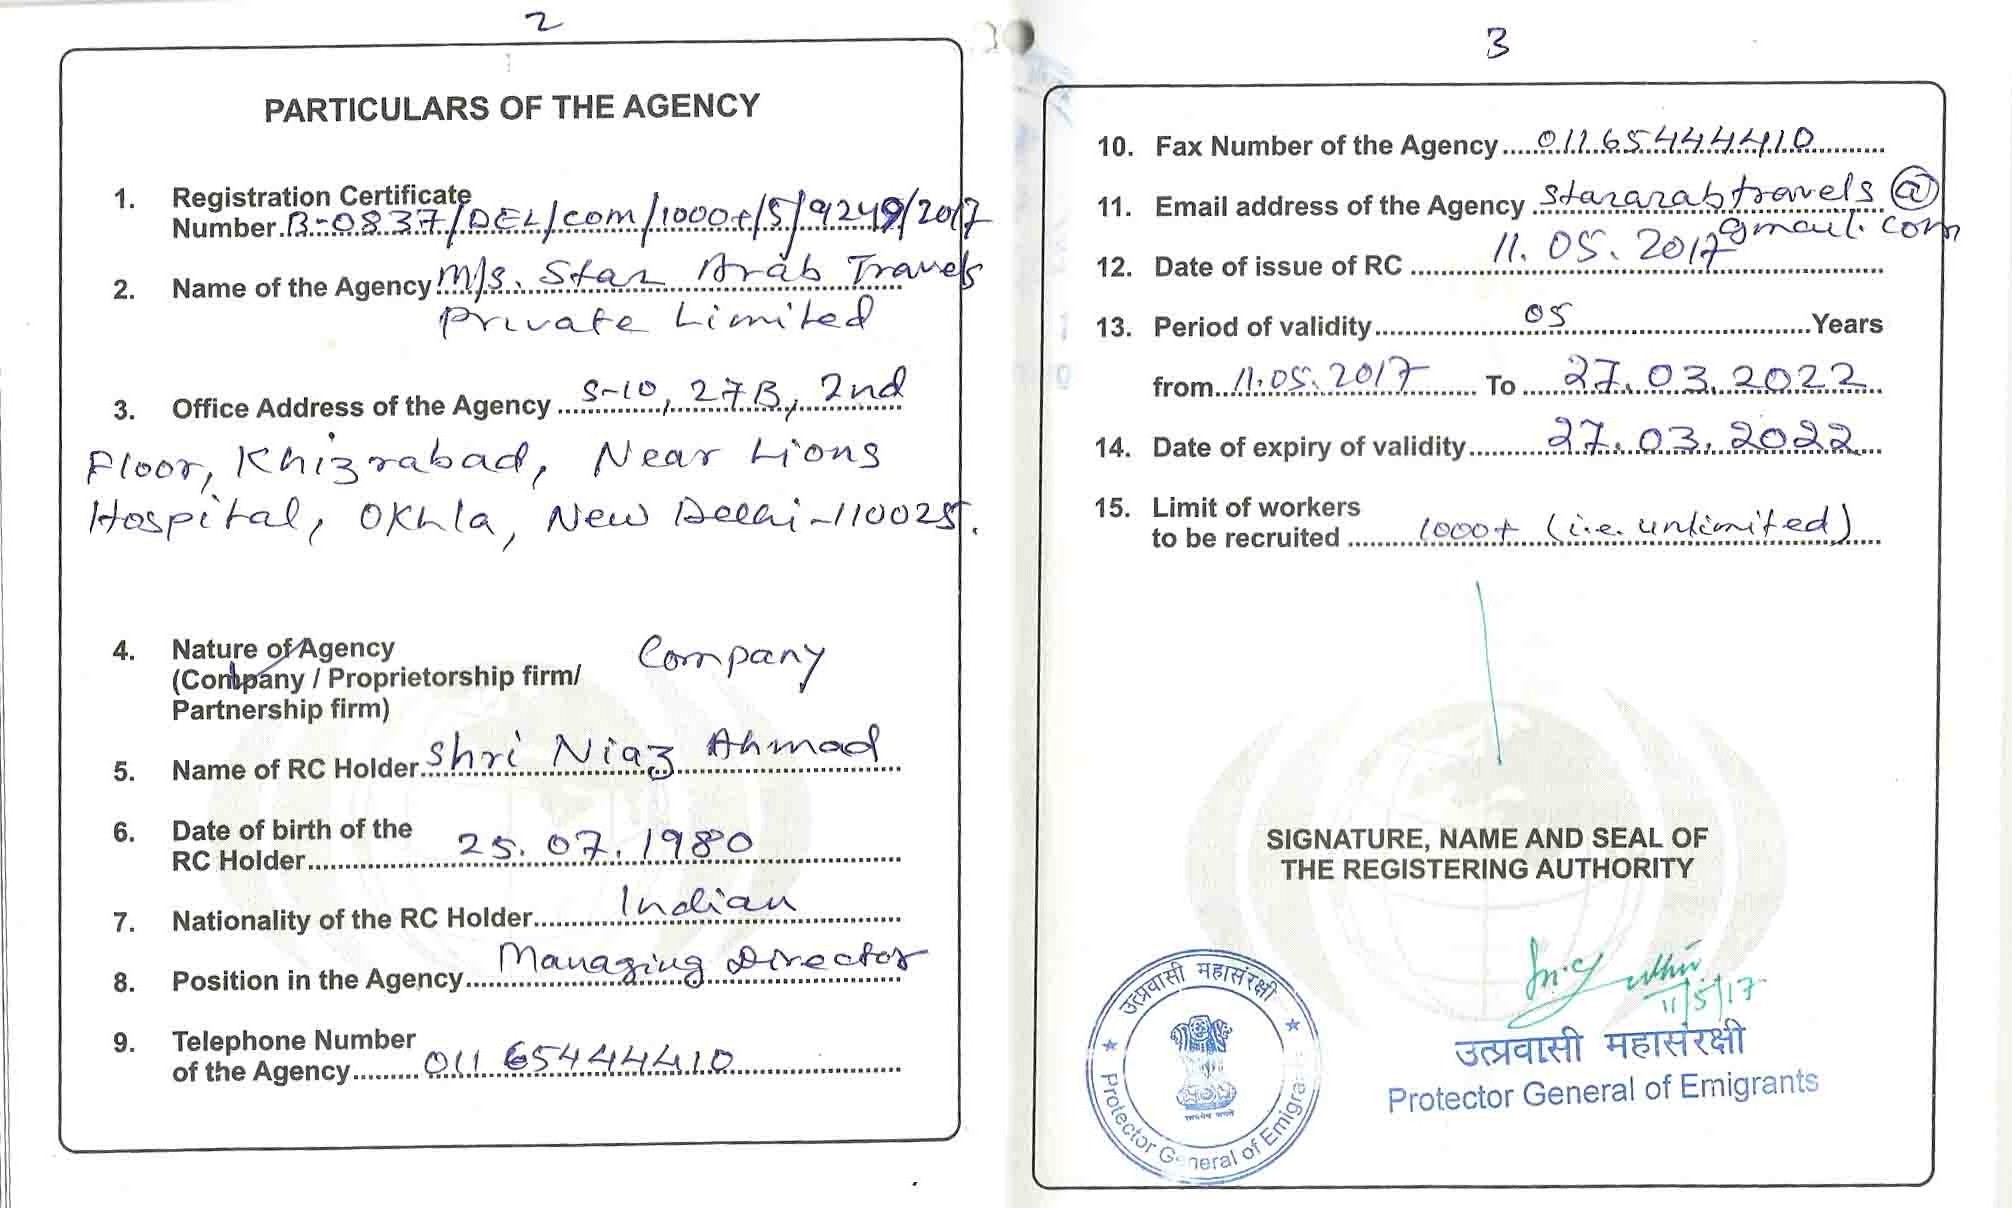 2
PARTICULARS OF THE AGENCY
1. Registration Certificate
Number B-0837/DEL/com/1000+/5/9249/2017
2. Name of the Agency M/s. Star Arab Travels
Private Limited
3. Office Address of the Agency S-10, 27B, 2nd
Floor, Khizrabad, Near Lions
Hospital, Okhla, New Delhi-110025.
4. Nature of Agency
(Company / Proprietorship firm/
Partnership firm)
Company
5. Name of RC Holder Shri Niaz Ahmad
6. Date of birth of the
RC Holder 25.07.1980
7. Nationality of the RC Holder Indian
8. Position in the Agency Managing Director
9. Telephone Number
of the Agency 011 65444410
3
10. Fax Number of the Agency 011 65444410
11. Email address of the Agency stararabtravels@
gmail.com
12. Date of issue of RC 11.05.2017
13. Period of validity 05 Years
from 11.05.2017 To 27.03.2022
14. Date of expiry of validity 27.03.2022
15. Limit of workers
to be recruited 1000+ (i.e. unlimited)
SIGNATURE, NAME AND SEAL OF
THE REGISTERING AUTHORITY
11/5/17
उत्प्रवासी महासंरक्षी
Protector General of Emigrants
उत्प्रवासी महासंरक्षी
Protector General of Emigrants